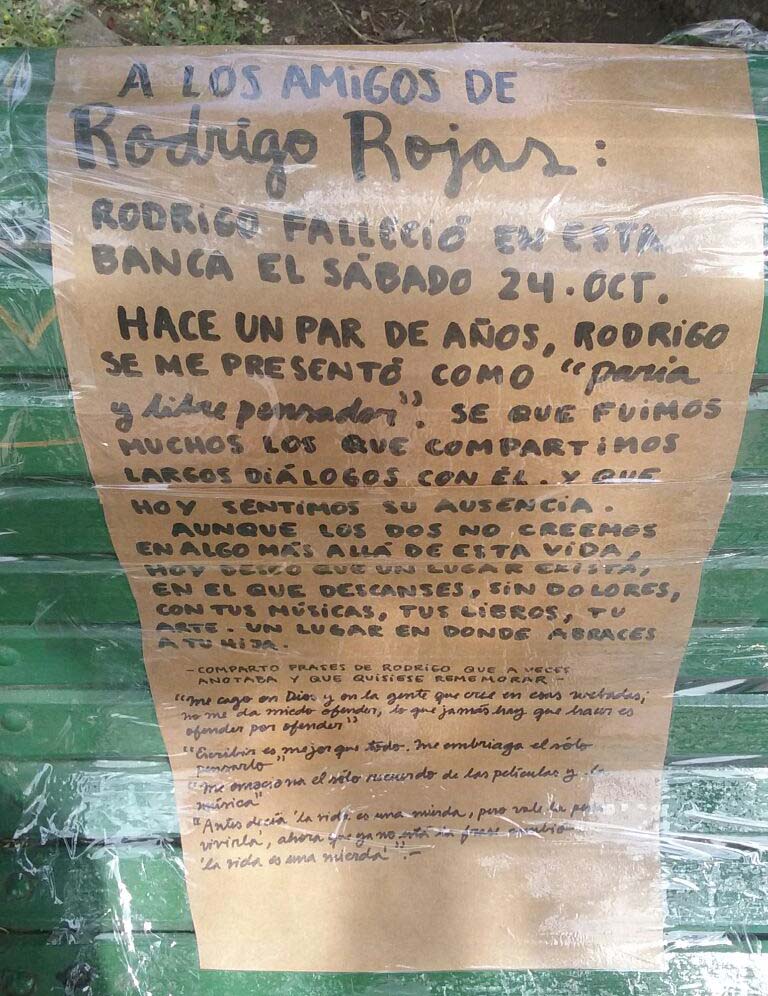 A LOS AMIGOS DE
Rodrigo Rojas:
RODRIGO FALLECIÓ EN ESTA
BANCA EL SÁBADO 24.OCT.
HACE UN PAR DE AÑOS, RODRIGO
SE ME PRESENTÓ COMO "paria
y libre pensador". SE QUE FUIMOS
MUCHOS LOS QUE COMPARTIMOS
LARGOS DIÁLOGOS CON ÉL. Y QUE
HOY SENTIMOS SU AUSENCIA.
AUNQUE LOS DOS NO CREEMOS
EN ALGO MÁS ALLÁ DE ESTA VIDA,
HOY DESEO QUE UN LUGAR EXISTA,
EN EL QUE DESCANSES, SIN DOLORES,
CON TUS MÚSICAS, TUS LIBROS, TU
ARTE. UN LUGAR EN DONDE ABRACES
A TU HIJA.
-COMPARTO FRASES DE RODRIGO QUE A VECES
ANOTABA Y QUE QUISIESE REMEMORAR-
"me cago en Dios y en la gente que cree en esas
no me da miedo ofender, lo que jamás hay que hacer es
ofender por ofender"
"Escribir es mejor que todo. Me embriaga el sólo
pensarlo"
"Me emociona el sólo recuerdo de las películas y la
música"
"Antes decía 'la vida es una mierda, pero vale la pena
vivirla', ahora que ya no está la frase cambio
'la vida es una mierda'".-